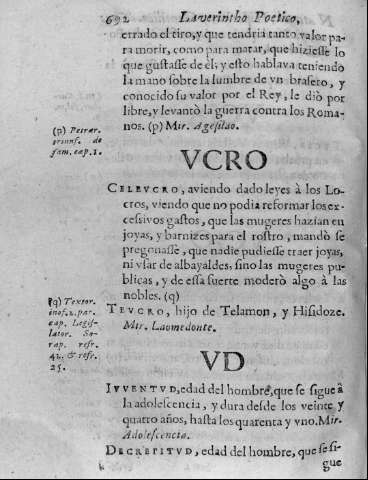 692 Laverintho Poetico,
errado el tiro, y que tendria tanto valor pa-
ra morir, como para matar, que hiziesse lo
que gustasse de èl; y esto hablava teniendo
la mano sobre la lumbre de vn brasero, y
conocido su valor por el Rey, le diò por
libre, y levantò la guerra contra los Roma-
nos. (p) Mir. Agesilao.
(p) Petrar.
triunf. de
fam. cap. 1.
VCRO
CELEVCRO, aviendo dado leyes à los Lo-
cros, viendo que no podia reformar los ex-
cessivos gastos, que las mugeres hazian en
joyas, y barnizes para el rostro, mandò se
pregonasse, que nadie pudiesse traer joyas,
ni vsar de albayaldes, sino las mugeres pu-
blicas, y de essa suerte moderò algo à las
nobles. (q)
(q) Textor.
inof. 2. par.
cap. Legis-
lator. Sa-
rap. refr.
42. & refr.
25.
TEVCRO, hijo de Telamon, y Hisidoze.
Mir. Laomedonte.
VD
IVVENTVD, edad del hombre, que se sigue à
la adolescencia, y dura desde los veinte y
quatro años, hasta los quarenta y vno. Mir.
Adolescencia.
DECREPITVD, edad del hombre, que se si-
gue